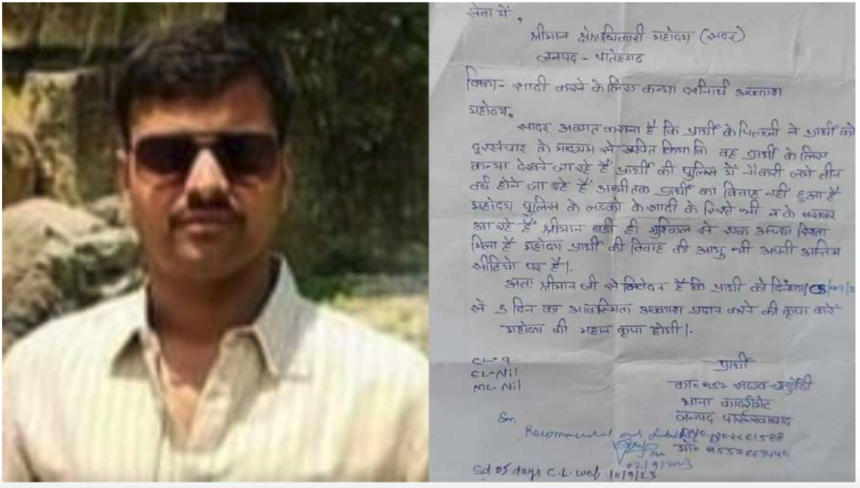 सेवा में,
श्रीमान क्षेत्राधिकारी महोदय (सदर)
जनपद - फतेहगढ़
विषय- शादी करने के लिए कन्या अवकाश
महोदय,
सादर अवगत कराना है कि प्रार्थी के पिताजी ने प्रार्थी को
दूरसंचार के माध्यम से किया कि वह प्रार्थी के लिए
कन्या देखने जा रहे हैं प्रार्थी की पुलिस में नौकरी लगे तीन
वर्ष होने जा रहे हैं अभीतक प्रार्थी का विवाह नहीं हुआ है
महोदय पुलिस के लडको के शादी के रिस्ते भी न के बराबर
आ रहे हैं श्रीमान बडी ही मुश्किल से एक अच्छा रिश्ता
मिला है महोदय प्रार्थी की विवाह की आयु भी अपनी अन्तिम
सीढियो पर है।
अतः श्रीमान जी से निवेदन है कि प्रार्थी को दिनांक
से 5 दिन का आकस्मिक अवकाश प्रदान करने की कृपा करें
महोदय की महान कृपा होगी।
CL-9
EL-Nil
ML-Nil
प्रार्थी
का० राघव चतुर्वेदी
थाना कादरीगेट
जनपद फर्रुखाबाद
Sir
Recommended and
02/9/2023
Sd 05 days C.L. wef 10/9/23